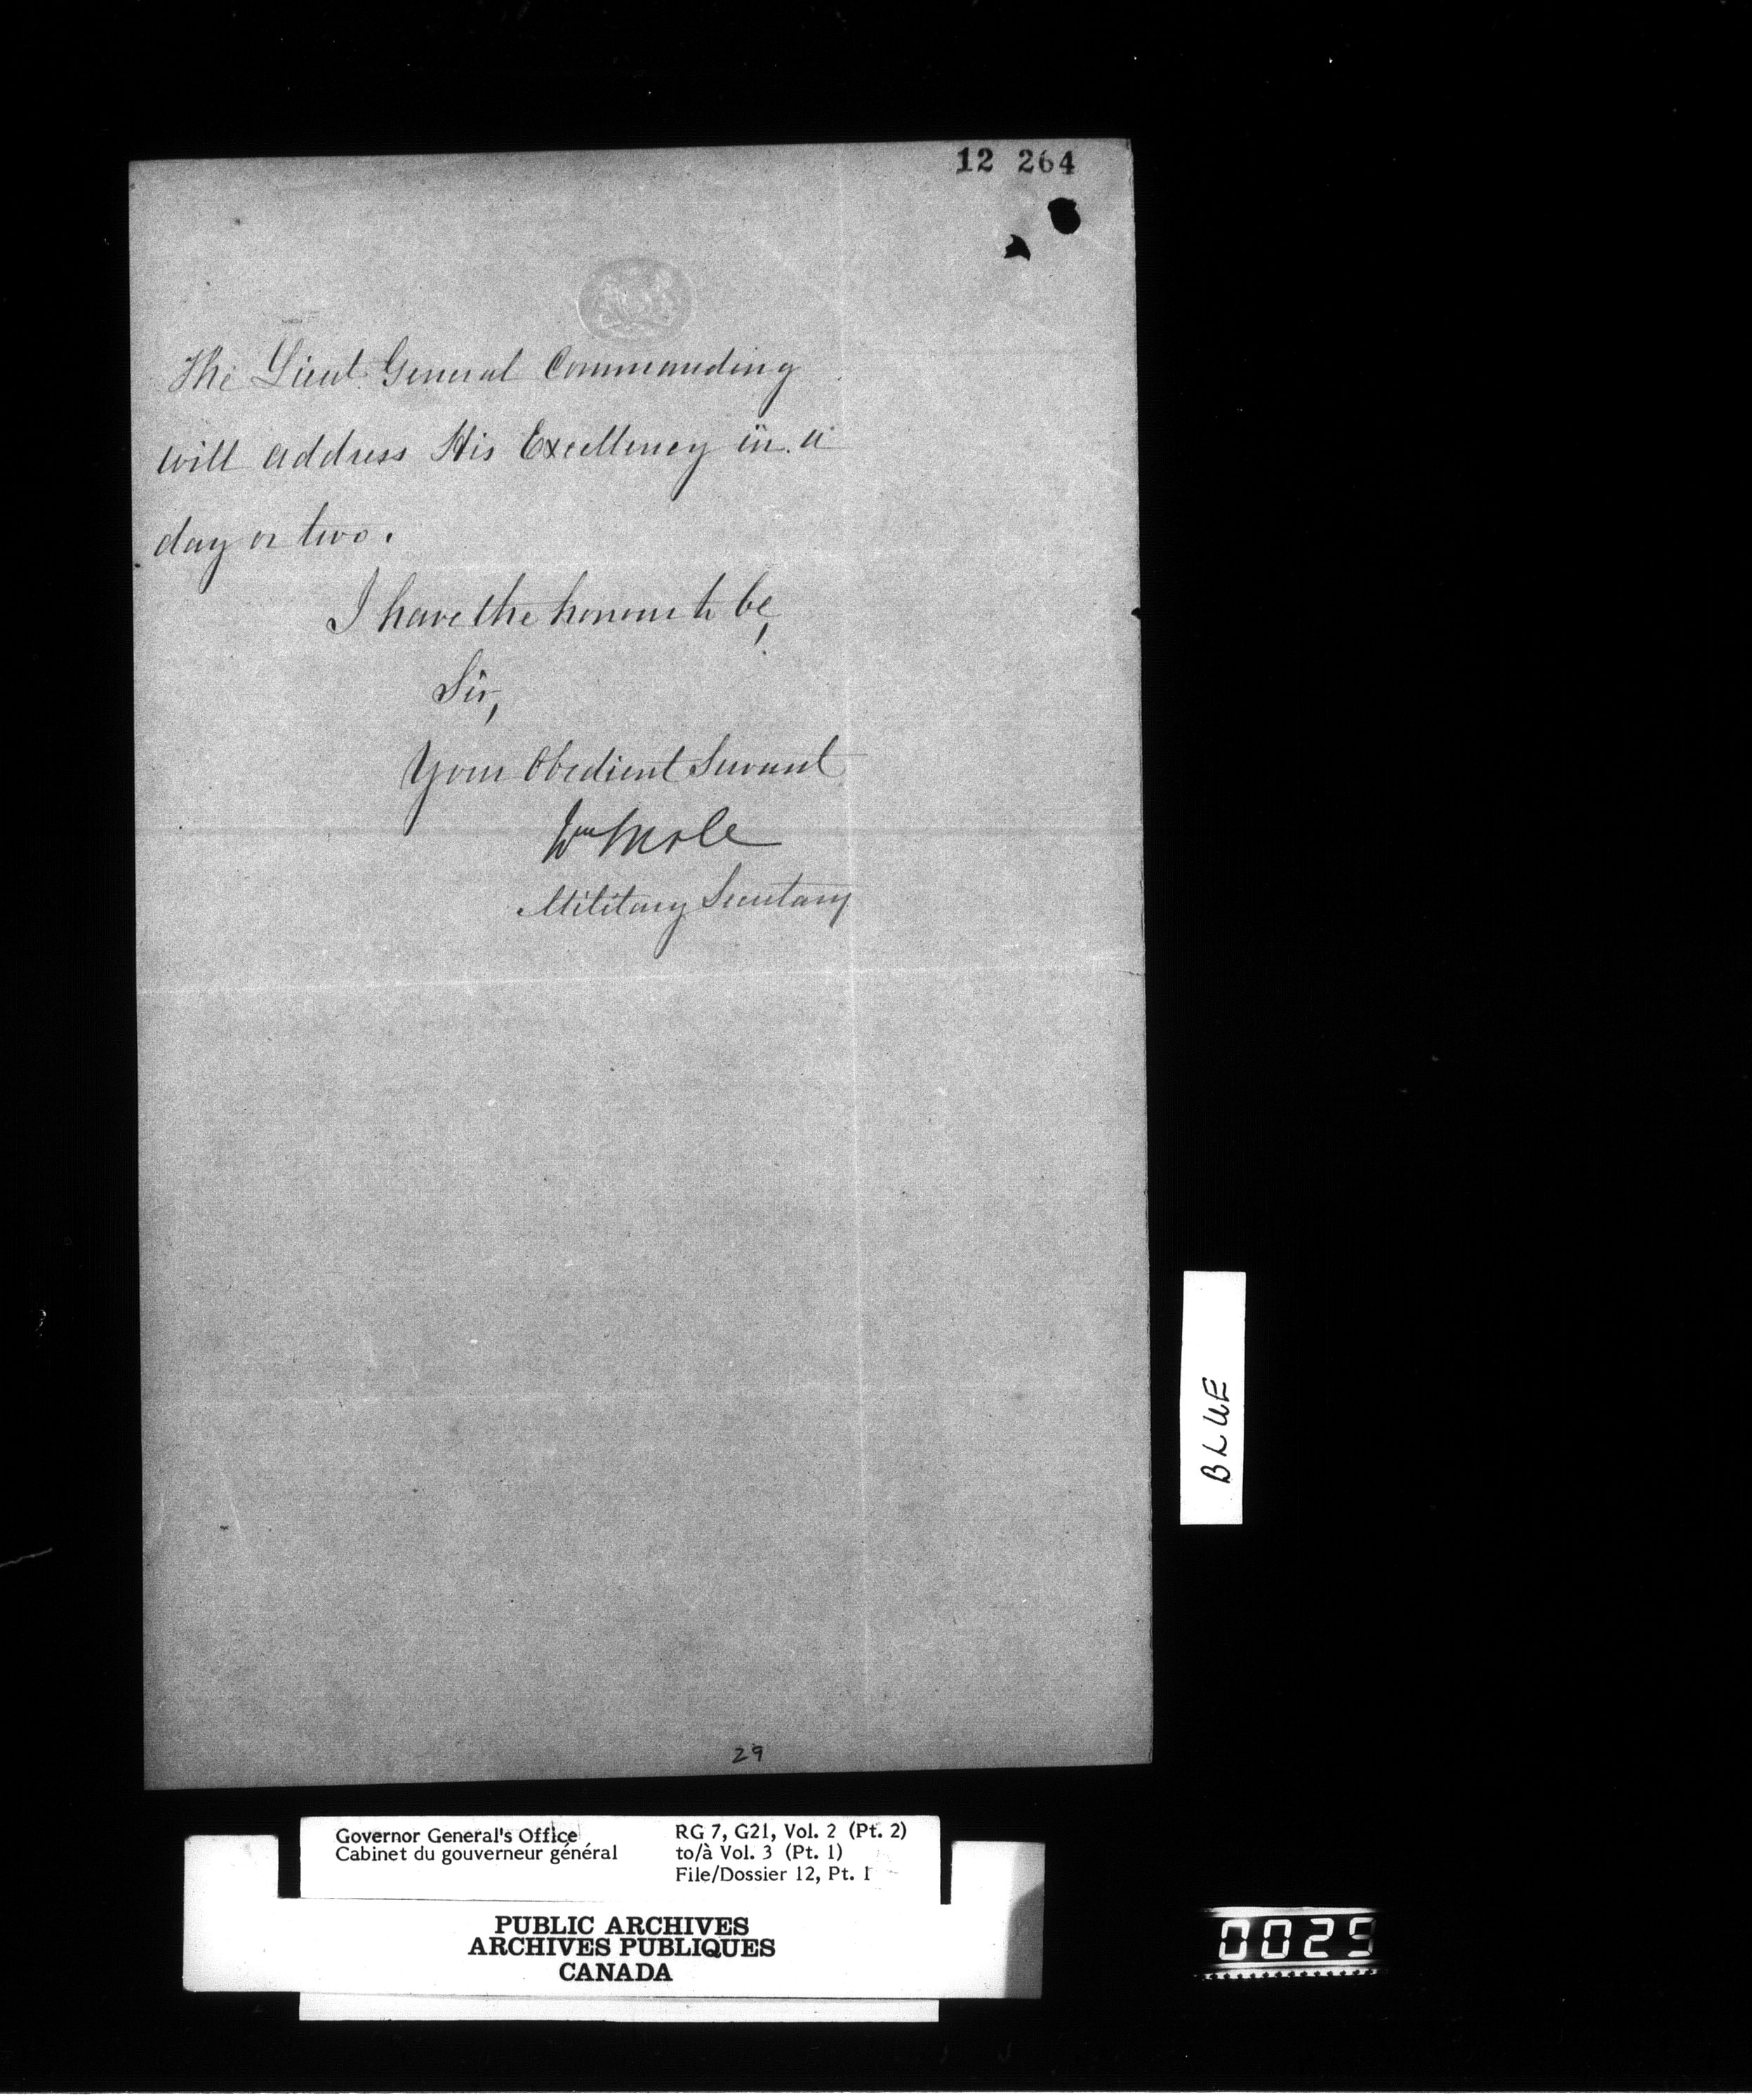 12 264
The Lieut. General Commanding
will address His Excellency in a
day or two.
I have the honour to be,
Sir,
Your Obedient Servant
Wm
Military Secretary
29
BLUE
Governor General's Office
Cabinet du gouverneur général
RG 7, G21, Vol. 2 (Pt. 2)
to/à Vol. 3 (Pt. 1)
File/Dossier 12, Pt. 1
PUBLIC ARCHIVES
ARCHIVES PUBLIQUES
CANADA
0029